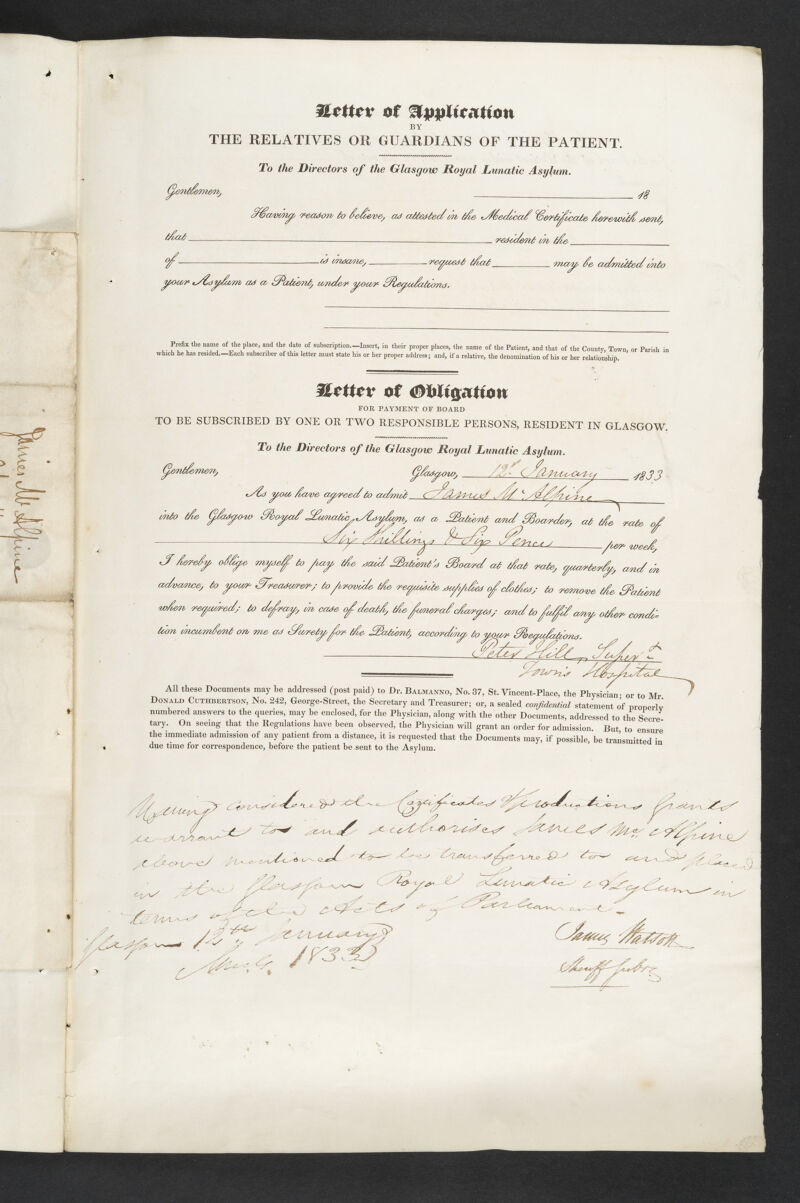 Letter of Application
BY
THE RELATIVES OR GUARDIANS OF THE PATIENT.
To the Directors of the Glasgow Royal Lunatic Asylum.
Gentlemen, 18
Having reason to believe, as attested in the Medical Certificate herewith sent,
that resident in the
of is insane, request that may be admitted into
your Asylum as a Patient, under your Regulations.
Prefix the name of the place, and the date of subscription.—Insert, in their proper places, the name of the Patient, and that of the County, Town, or Parish in
which he has resided.—Each subscriber of this letter must state his or her proper address; and, if a relative, the denomination of his or her relationship.
Letter of Obligation
FOR PAYMENT OF BOARD
TO BE SUBSCRIBED BY ONE OR TWO RESPONSIBLE PERSONS, RESIDENT IN GLASGOW.
To the Directors of the Glasgow Royal Lunatic Asylum.
Gentlemen, Glasgow, 12th January 1833
As you have agreed to admit James McAlpine
into the Glasgow Royal Lunatic Asylum, as a Patient and Boarder, at the rate of
Six Shillings & Six Pence per week,
I hereby oblige myself to pay the said Patient's Board at that rate, quarterly, and in
advance, to your Treasurer; to provide the requisite supplies of clothes; to remove the Patient
when required; to defray, in case of death, the funeral charges; and to fulfil any other condi-
tion incumbent on me as Surety for the Patient, according to your Regulations.
Peter Hill, Supert
Town's Hospital
All these Documents may be addressed (post paid) to Dr. BALMANNO, No. 37, St. Vincent-Place, the Physician; or to Mr.
DONALD CUTHBERTSON, No. 242, George-Street, the Secretary and Treasurer; or, a sealed confidential statement of properly
numbered answers to the queries, may be enclosed, for the Physician, along with the other Documents, addressed to the Secre-
tary. On seeing that the Regulations have been observed, the Physician will grant an order for admission. But, to ensure
the immediate admission of any patient from a distance, it is requested that the Documents may, if possible, be transmitted in
due time for correspondence, before the patient be sent to the Asylum.
Having considered the Certificates & productions Grants
warrant to and authorises James McAlpine
above mentioned to be transferred to and placed
in the Glasgow Royal Lunatic Asylum in
terms of the Acts of Parliament.
Glasgow 12th January
1833
James Watson
Sheriff Subs
James McAlpine